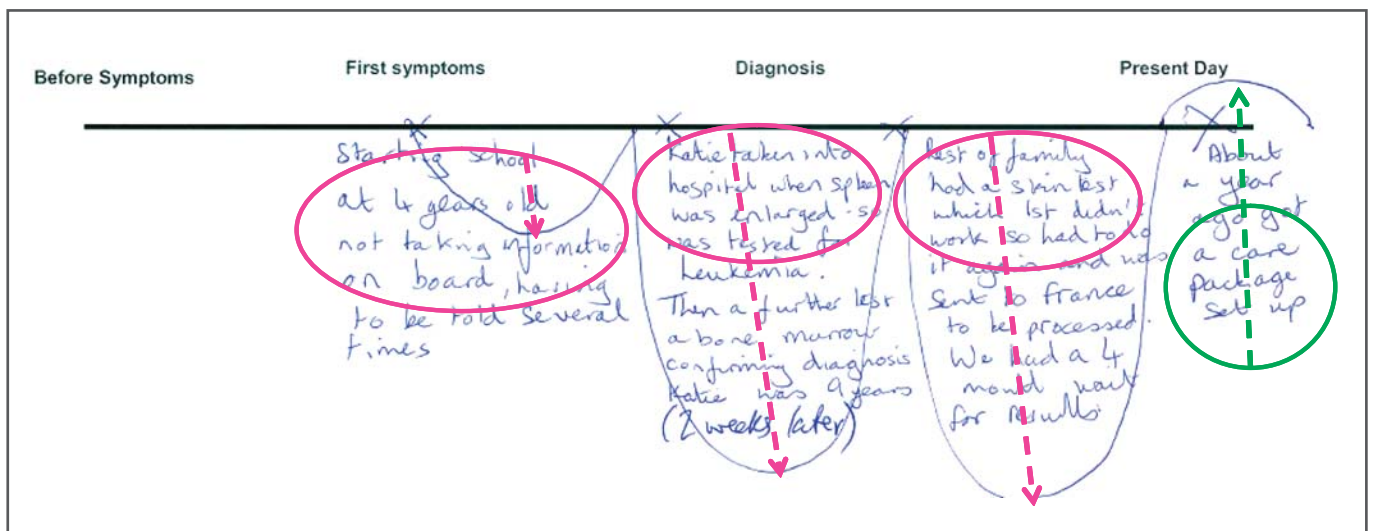 Before Symptoms
First symptoms
Diagnosis
Present Day
Starting school
at 4 years old
not taking information
on board, having
to be told several
times
Katie taken into
hospital when spleen
was enlarged so
was tested for
Leukemia.
Then a further test
a bone murrow
confirming diagnosis
Katie was 9 years
(2 weeks later)
Rest of family
had a skin test
which 1st didn't
work so had to do
it again and was
sent to France
to be processed.
We had a 4
month wait
for results.
About
a year
ago got
a care
package
set up